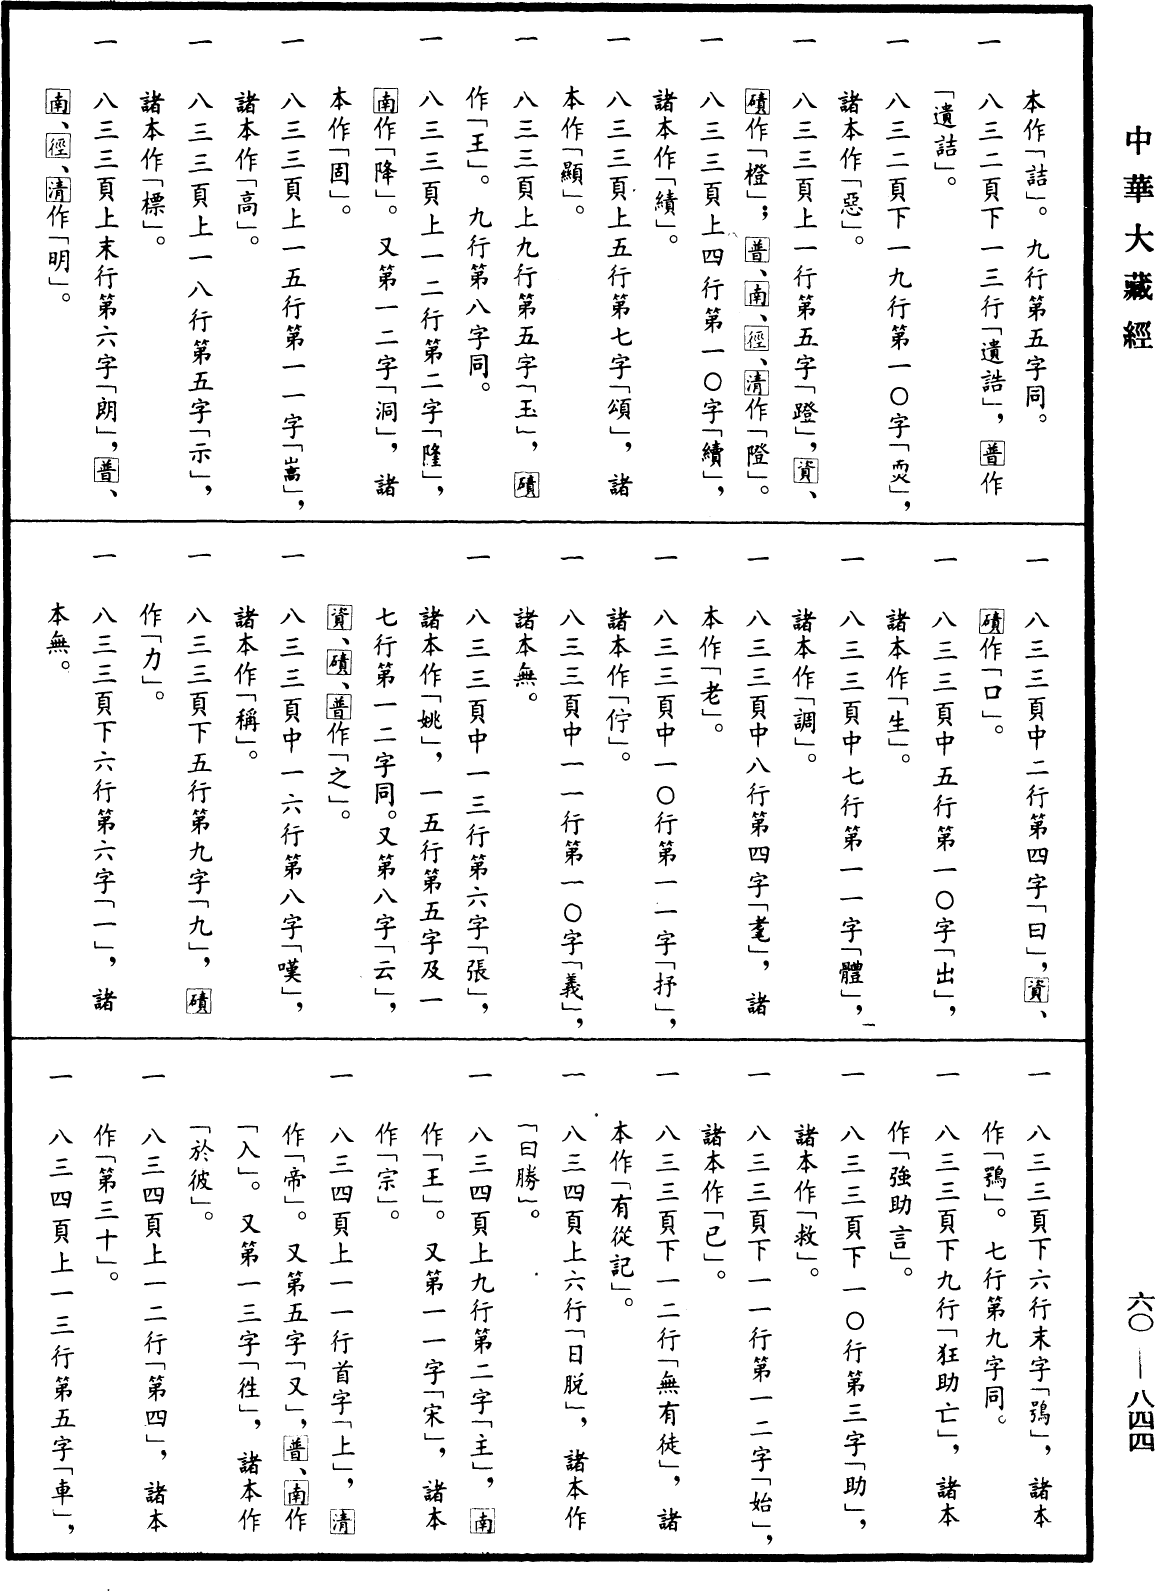 中華大藏經
本作「詰」。九行第五字同。
一 八三二頁下一三行「遺誥」，普作
「遺詰」。
一 八三二頁下一九行第一〇字「㷊」，
諸本作「惡」。
一 八三三頁上一行第五字「蹬」，資、
磧作「橙」；普、南、徑、清作「隥」。
一 八三三頁上四行第一〇字「續」，
諸本作「績」。
一 八三三頁上五行第七字「頌」，諸
本作「顯」。
一 八三三頁上九行第五字「玉」，磧
作「王」。九行第八字同。
一 八三三頁上一二行第二字「隆」，
南作「降」。又第一二字「洞」，諸
本作「固」。
一 八三三頁上一五行第一一字「嵩」，
諸本作「高」。
一 八三三頁上一八行第五字「示」，
諸本作「標」。
一 八三三頁上末行第六字「朗」，普、
南、徑、清作「明」。
一 八三三頁中二行第四字「曰」，資、
磧作「口」。
一 八三三頁中五行第一〇字「出」，
諸本作「生」。
一 八三三頁中七行第一一字「體」，
諸本作「調」。
一 八三三頁中八行第四字「耄」，諸
本作「老」。
一 八三三頁中一〇行第一一字「抒」，
諸本作「佇」。
一 八三三頁中一一行第一〇字「義」，
諸本無。
一 八三三頁中一三行第六字「張」，
諸本作「姚」，一五行第五字及一
七行第一二字同。又第八字「云」，
資、磧、普作「之」。
一 八三三頁中一六行第八字「嘆」，
諸本作「稱」。
一 八三三頁下五行第九字「九」，磧
作「力」。
一 八三三頁下六行第六字「一」，諸
本無。
一 八三三頁下六行末字「鴞」，諸本
作「鶚」。七行第九字同。
一 八三三頁下九行「狂助亡」，諸本
作「強助言」。
一 八三三頁下一〇行第三字「助」，
諸本作「救」。
一 八三三頁下一一行第一二字「始」，
諸本作「已」。
一 八三三頁下一二行「無有徒」，諸
本作「有從記」。
一 八三四頁上六行「日脱」，諸本作
「曰勝」。
一 八三四頁上九行第二字「主」，南
作「王」。又第一一字「宋」，諸本
作「宗」。
一 八三四頁上一一行首字「上」，清
作「帝」。又第五字「又」，普、南作
「入」。又第一三字「徃」，諸本作
「於彼」。
一 八三四頁上一二行「第四」，諸本
作「第三十」。
一 八三四頁上一三行第五字「車」，
六〇 — 八四四